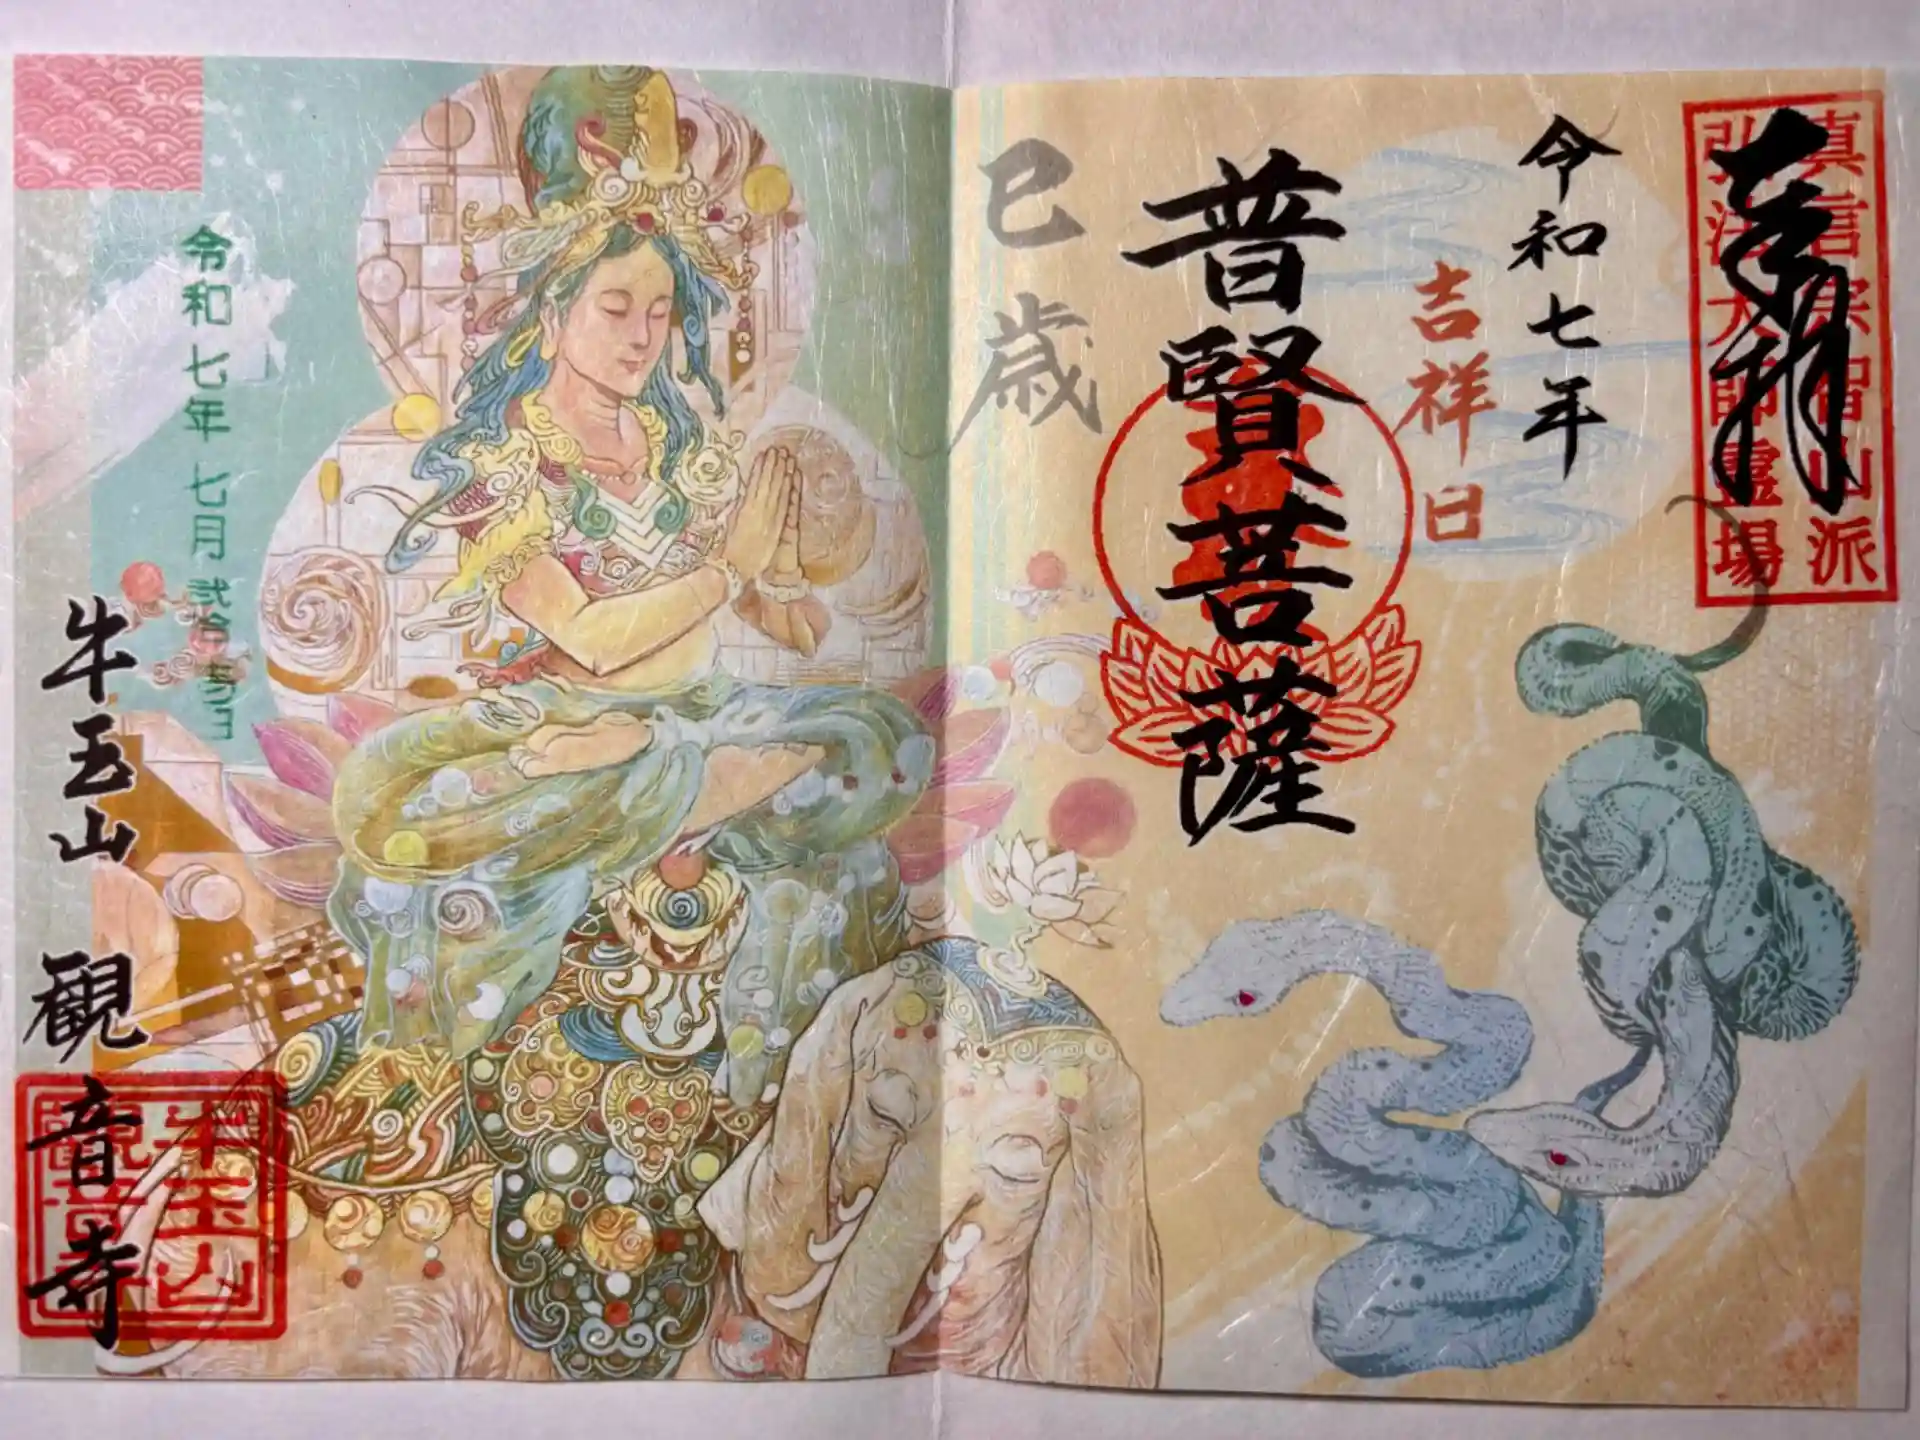 奉拝
真言宗智山派
弘法大師霊場
令和七年
吉祥日
普賢菩薩
巳歳
令和七年七月弐拾
牛玉山
観音寺
牛玉山
観音寺